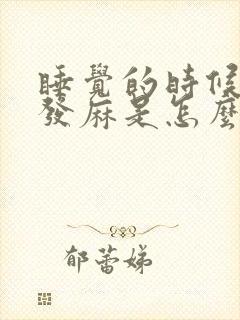 睡覺的時候
發麻是怎麼
郁蕾娣